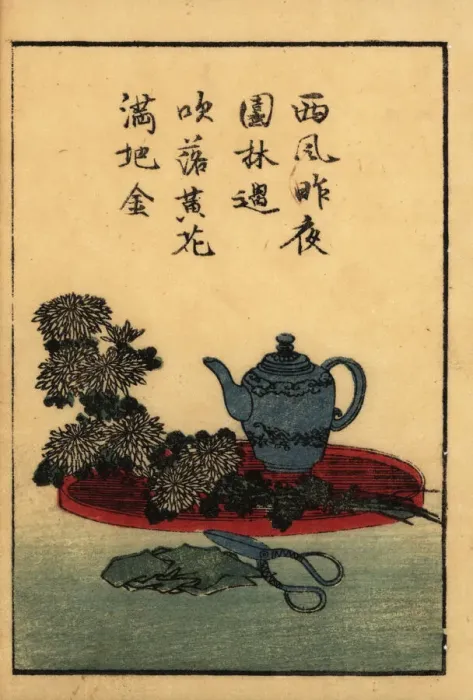 西風昨夜
園林過
吹落黄花
満地金